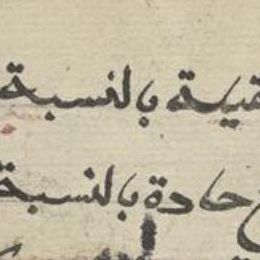 ثقيلة بالنسبة
حادة بالنسبة